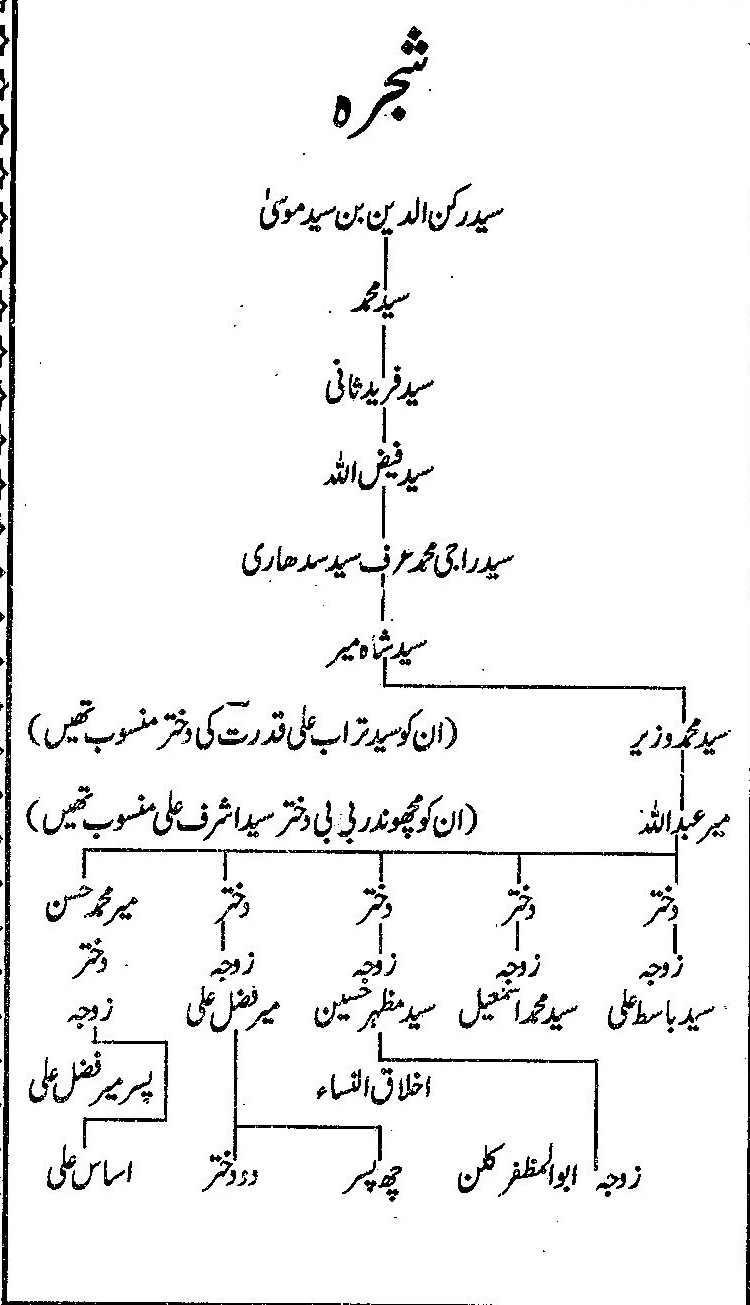 شجرہ
سید رکن الدین بن سید موسیٰ
سید محمد
سید فرید ثانی
سید فیض اللہ
سید راجی محمد عرف سید سدھاری
سید شاہ میر
سید محمد وزیر (ان کو سید تراب علی قدرت کی دختر منسوب تھیں)
میر عبداللہ (ان کو مچھوندر بی بی دختر سید اشرف علی منسوب تھیں)
دختر دختر دختر دختر میر محمد حسن
زوجہ زوجہ زوجہ زوجہ دختر
سید باسط علی سید محمد اسمٰعیل سید مظہر حسین میر فضل علی زوجہ
اخلاق النساء پسر میر فضل علی
زوجہ ابوالمظفر کلن چھ پسر دو دختر اساس علی